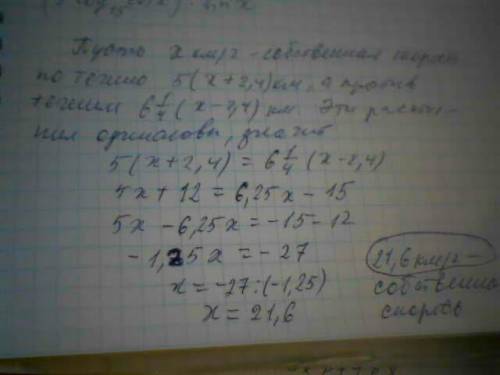 Пусть x км/ч - собственная скорость
по течению 5(x+2,4) км, а против
течения 6 1/4 (x-2,4) км. Эти расстоя-
ния одинаковы, значит
5(x+2,4) = 6 1/4 (x-2,4)
5x + 12 = 6,25x - 15
5x - 6,25x = -15 - 12
-1,25x = -27
x = -27:(-1,25)
x = 21,6
21,6 км/ч -
собствен
скорость